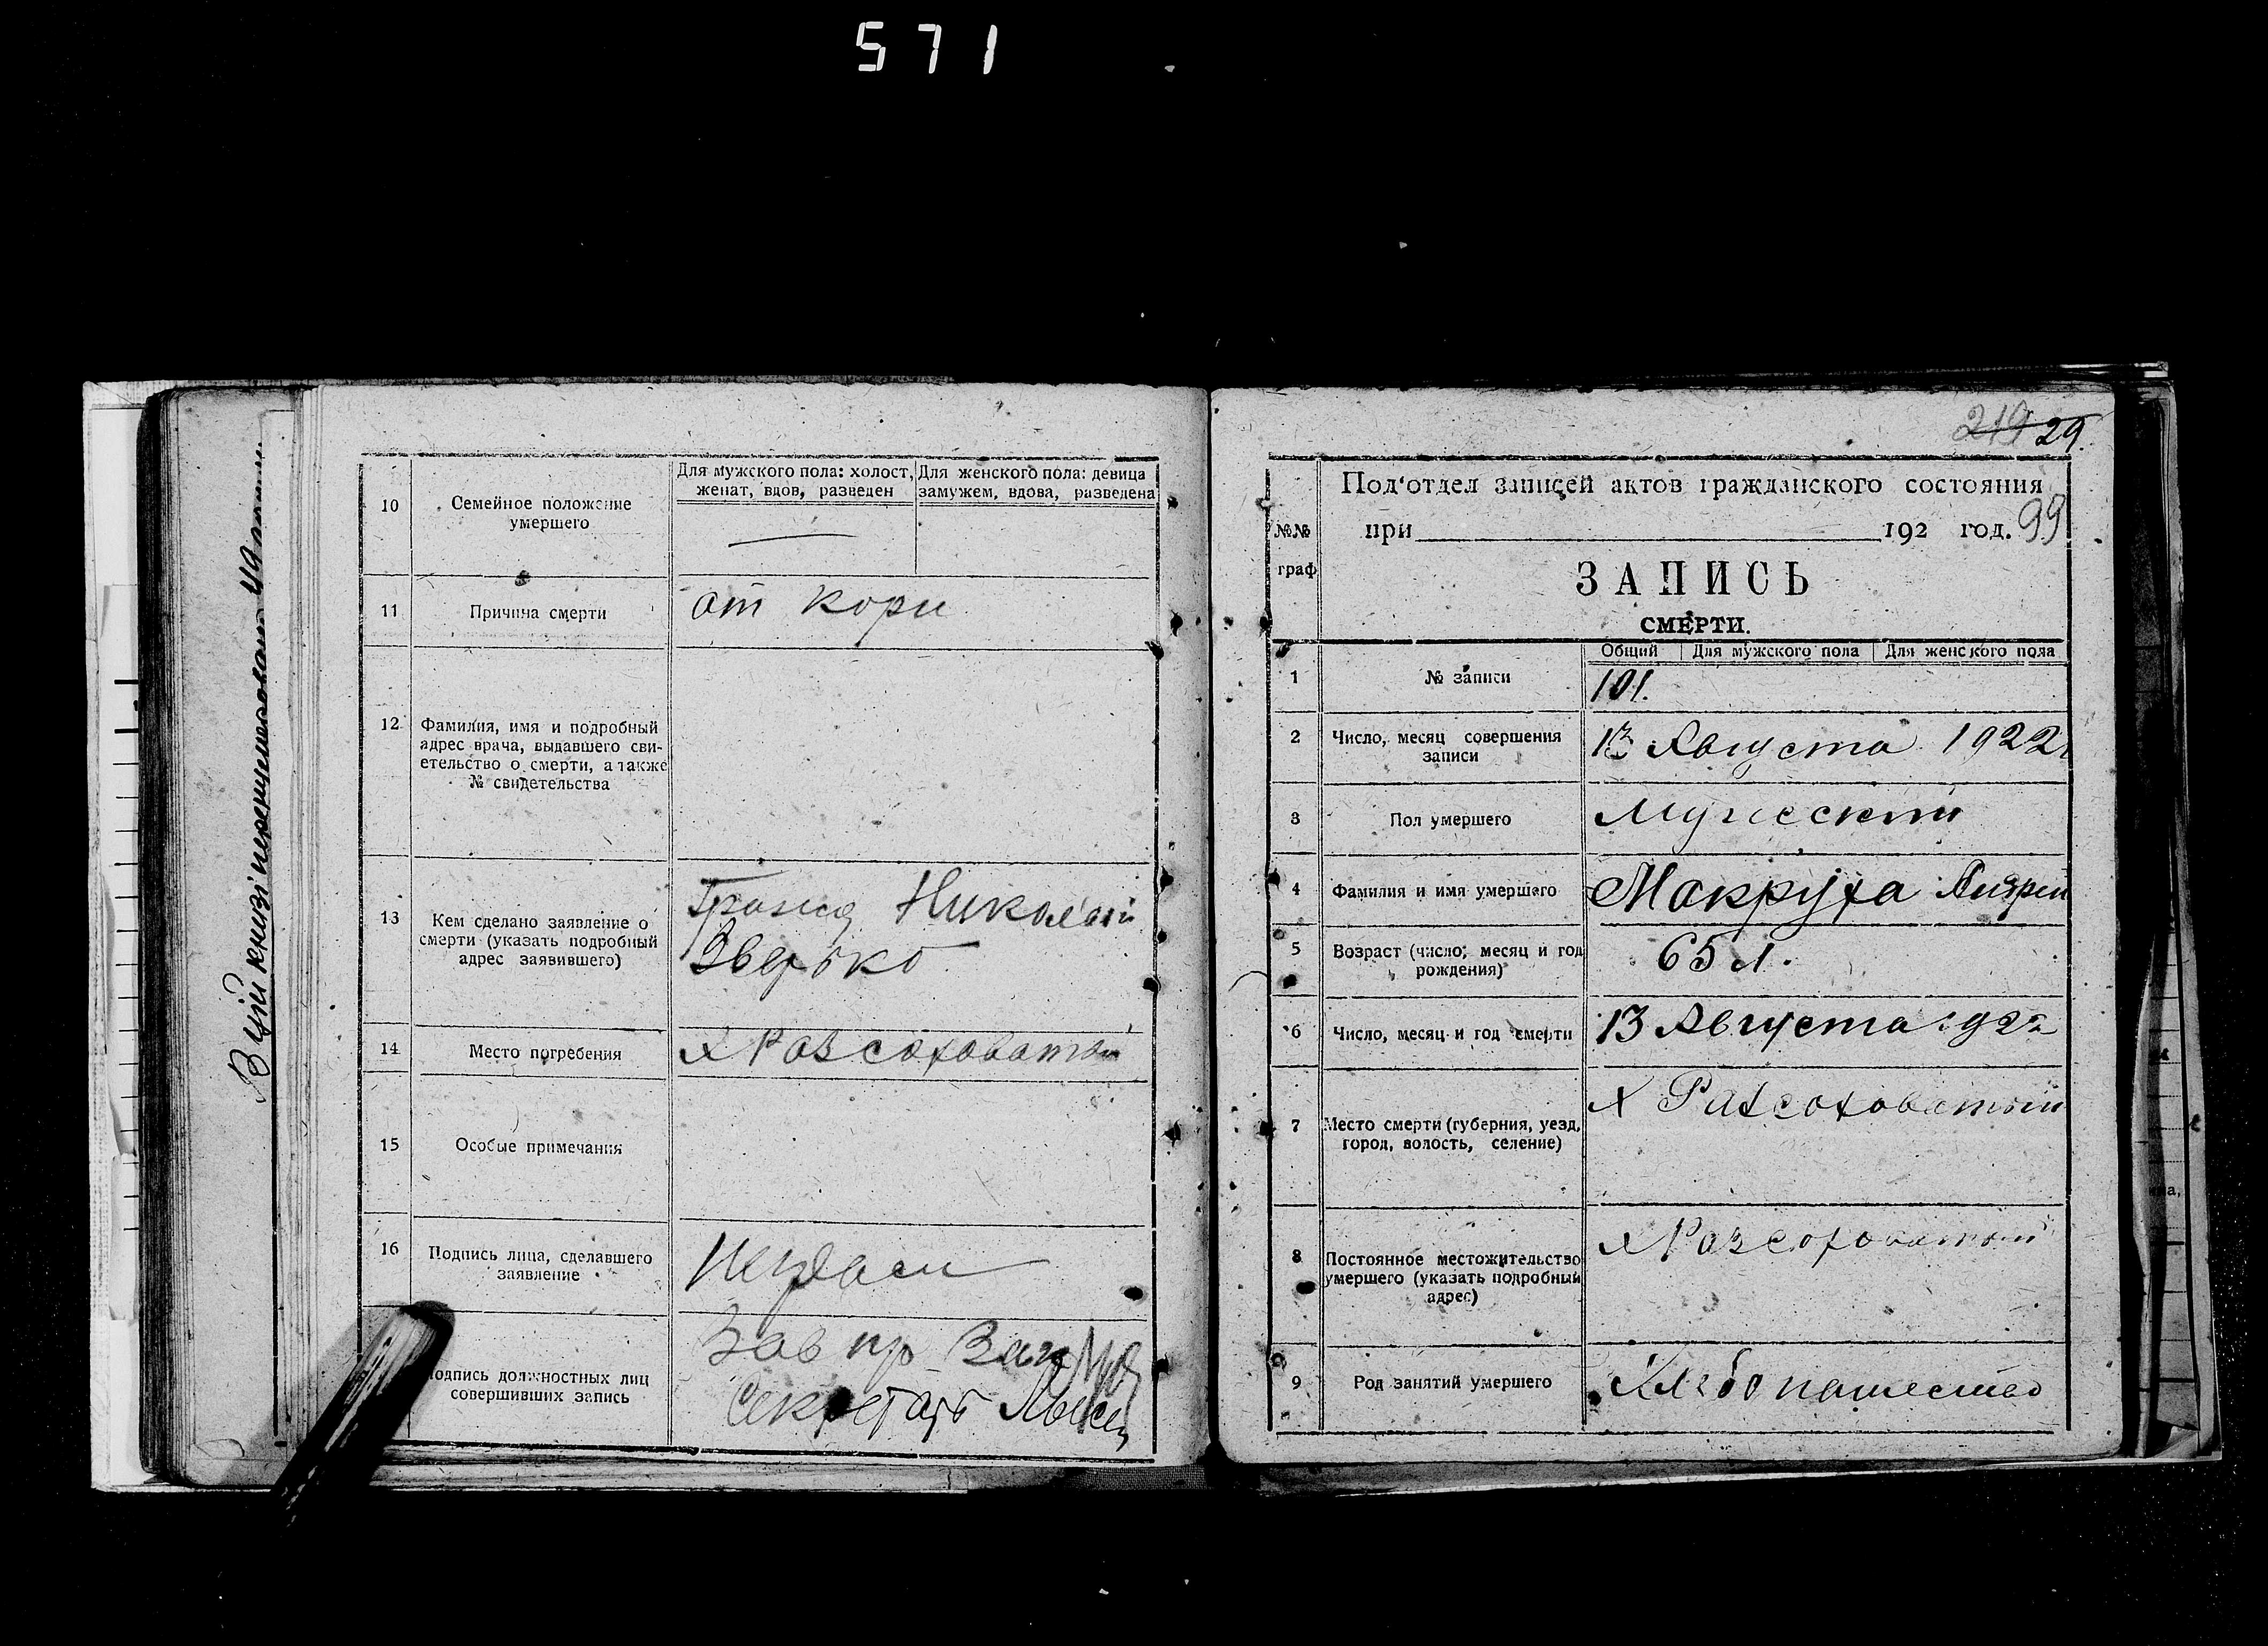 571
В цій книзі пронумеровано
10
Семейное положение
умершего
Для мужского пола: холост,
женат, вдов, разведен
Для женского пола: девица
замужем, вдова, разведена
11
Причина смерти
от кори
12
Фамилия, имя и подробный
адрес врача, выдавшего сви-
етельство о смерти, а также
№ свидетельства
13
Кем сделано заявление о
смерти (указать подробный
адрес заявившего)
Николай
Зверько
14
Место погребения
х Разсоховатый
15
Особые примечания
16
Подпись лица, сделавшего
заявление
одпись должностных лиц
совершивших запись
Зав пр
Секретарь
219 29.
№№
граф
Под'отдел записей актов гражданского состояния
при 192 год. 99
ЗАПИСЬ
СМЕРТИ.
Общий
Для мужского пола
Для женского пола
1
№ записи
101.
2
Число, месяц совершения
записи
13 Августа 1922г
3
Пол умершего
Мужеский
4
Фамилия и имя умершего
Макруха Андрей
5
Возраст (число, месяц и год
рождения)
65 л.
6
Число, месяц и год смерти
13 Августа 1922
7
Место смерти (губерния, уезд,
город, волость, селение)
х Разсоховатый
8
Постоянное местожительство
умершего (указать подробный
адрес)
х Разсоховатый
9
Род занятий умершего
Хлебопашество